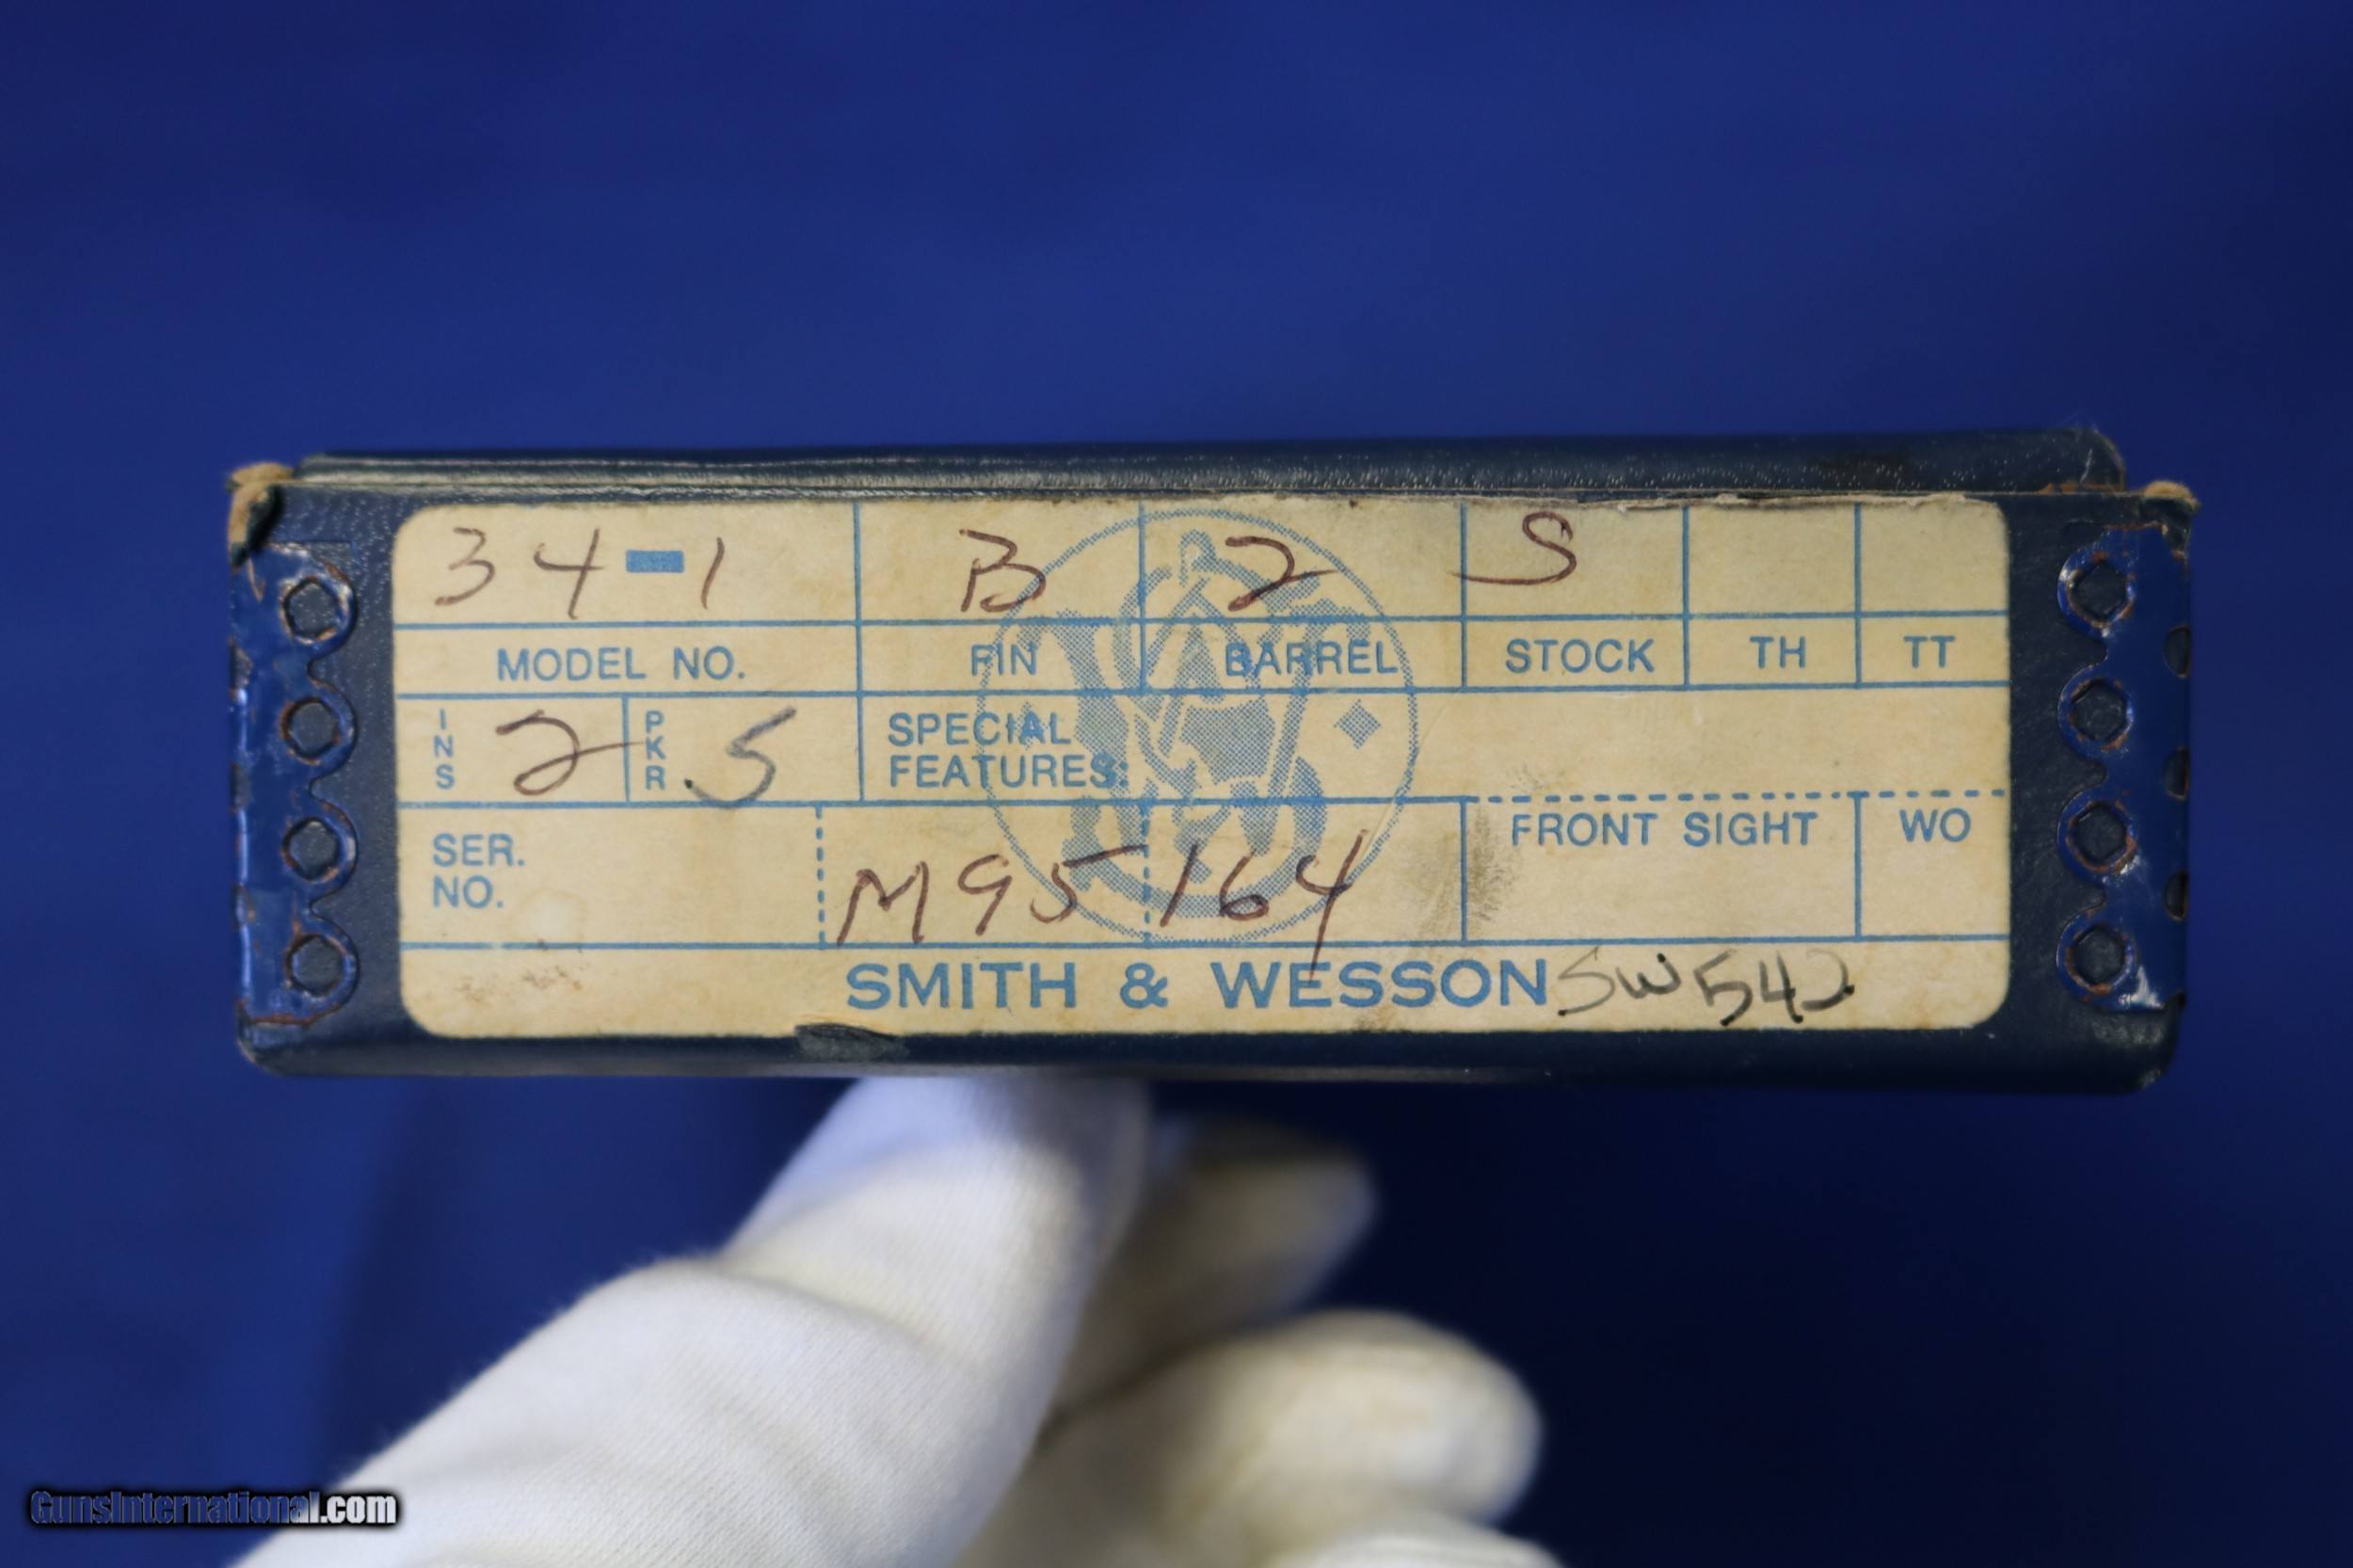 34-1 B 2 S
MODEL NO. FIN BARREL STOCK TH TT
INS 2 PKR 5 SPECIAL
FEATURES:
SER.
NO. M95164 FRONT SIGHT WO
SMITH & WESSON SW542
GunsInternational.com